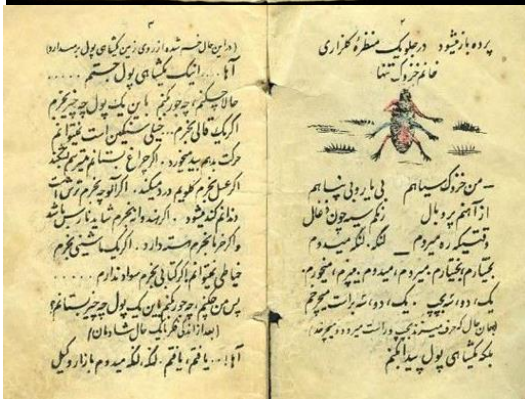 ۲
پرده باز میشود در جلو یک منظرهٔ گلزاری
خانم خزوک تنها
ـ من خزوک سیاهم بی یار و بی پناهم
از آهنم پر و بال رنگم سیه چون ذغال
وقتیکه ره میروم ـ لنگه لنگه میدوم
میروم، میدوم، میپرم، میخورم.
یک، دو، بچپ. یک، دو، براست میچرخم
بلکه یکشاهی پول پیدا بکنم
۳
(در این حال خم شده از روی زمین یکشاهی پول برمیدارد)
آها .... اینک یکشاهی پول جستم .....
حالا چکنم، چه جور کنم با این یک پول چه چیز بخرم
اگر یک قالی بخرم.. خیلی سنگین است نمیتوانم
حرکت بدهم. اگر چراغ بستانم میترسم بشکند
اگر عسل بخرم گلویم درد میکند. اگر آلوچه بخرم ترش است
دندانم کند میشود. اگر هندوانه بخرم شاید نارس باشد
و اگر خرما بخرم هسته دارد. اگر یک ماشینی بخرم
خیاطی نمیتوانم، اگر کتابی بخرم سواد ندارم .....
پس من چکنم، چه جور کنم با این یک پول چه چیز بستانم؟
(بعد از اندکی فکر با یک حال شادمان)
آها.. یافتم، یافتم. لنگه، لنگه میدوم بازار وکیل